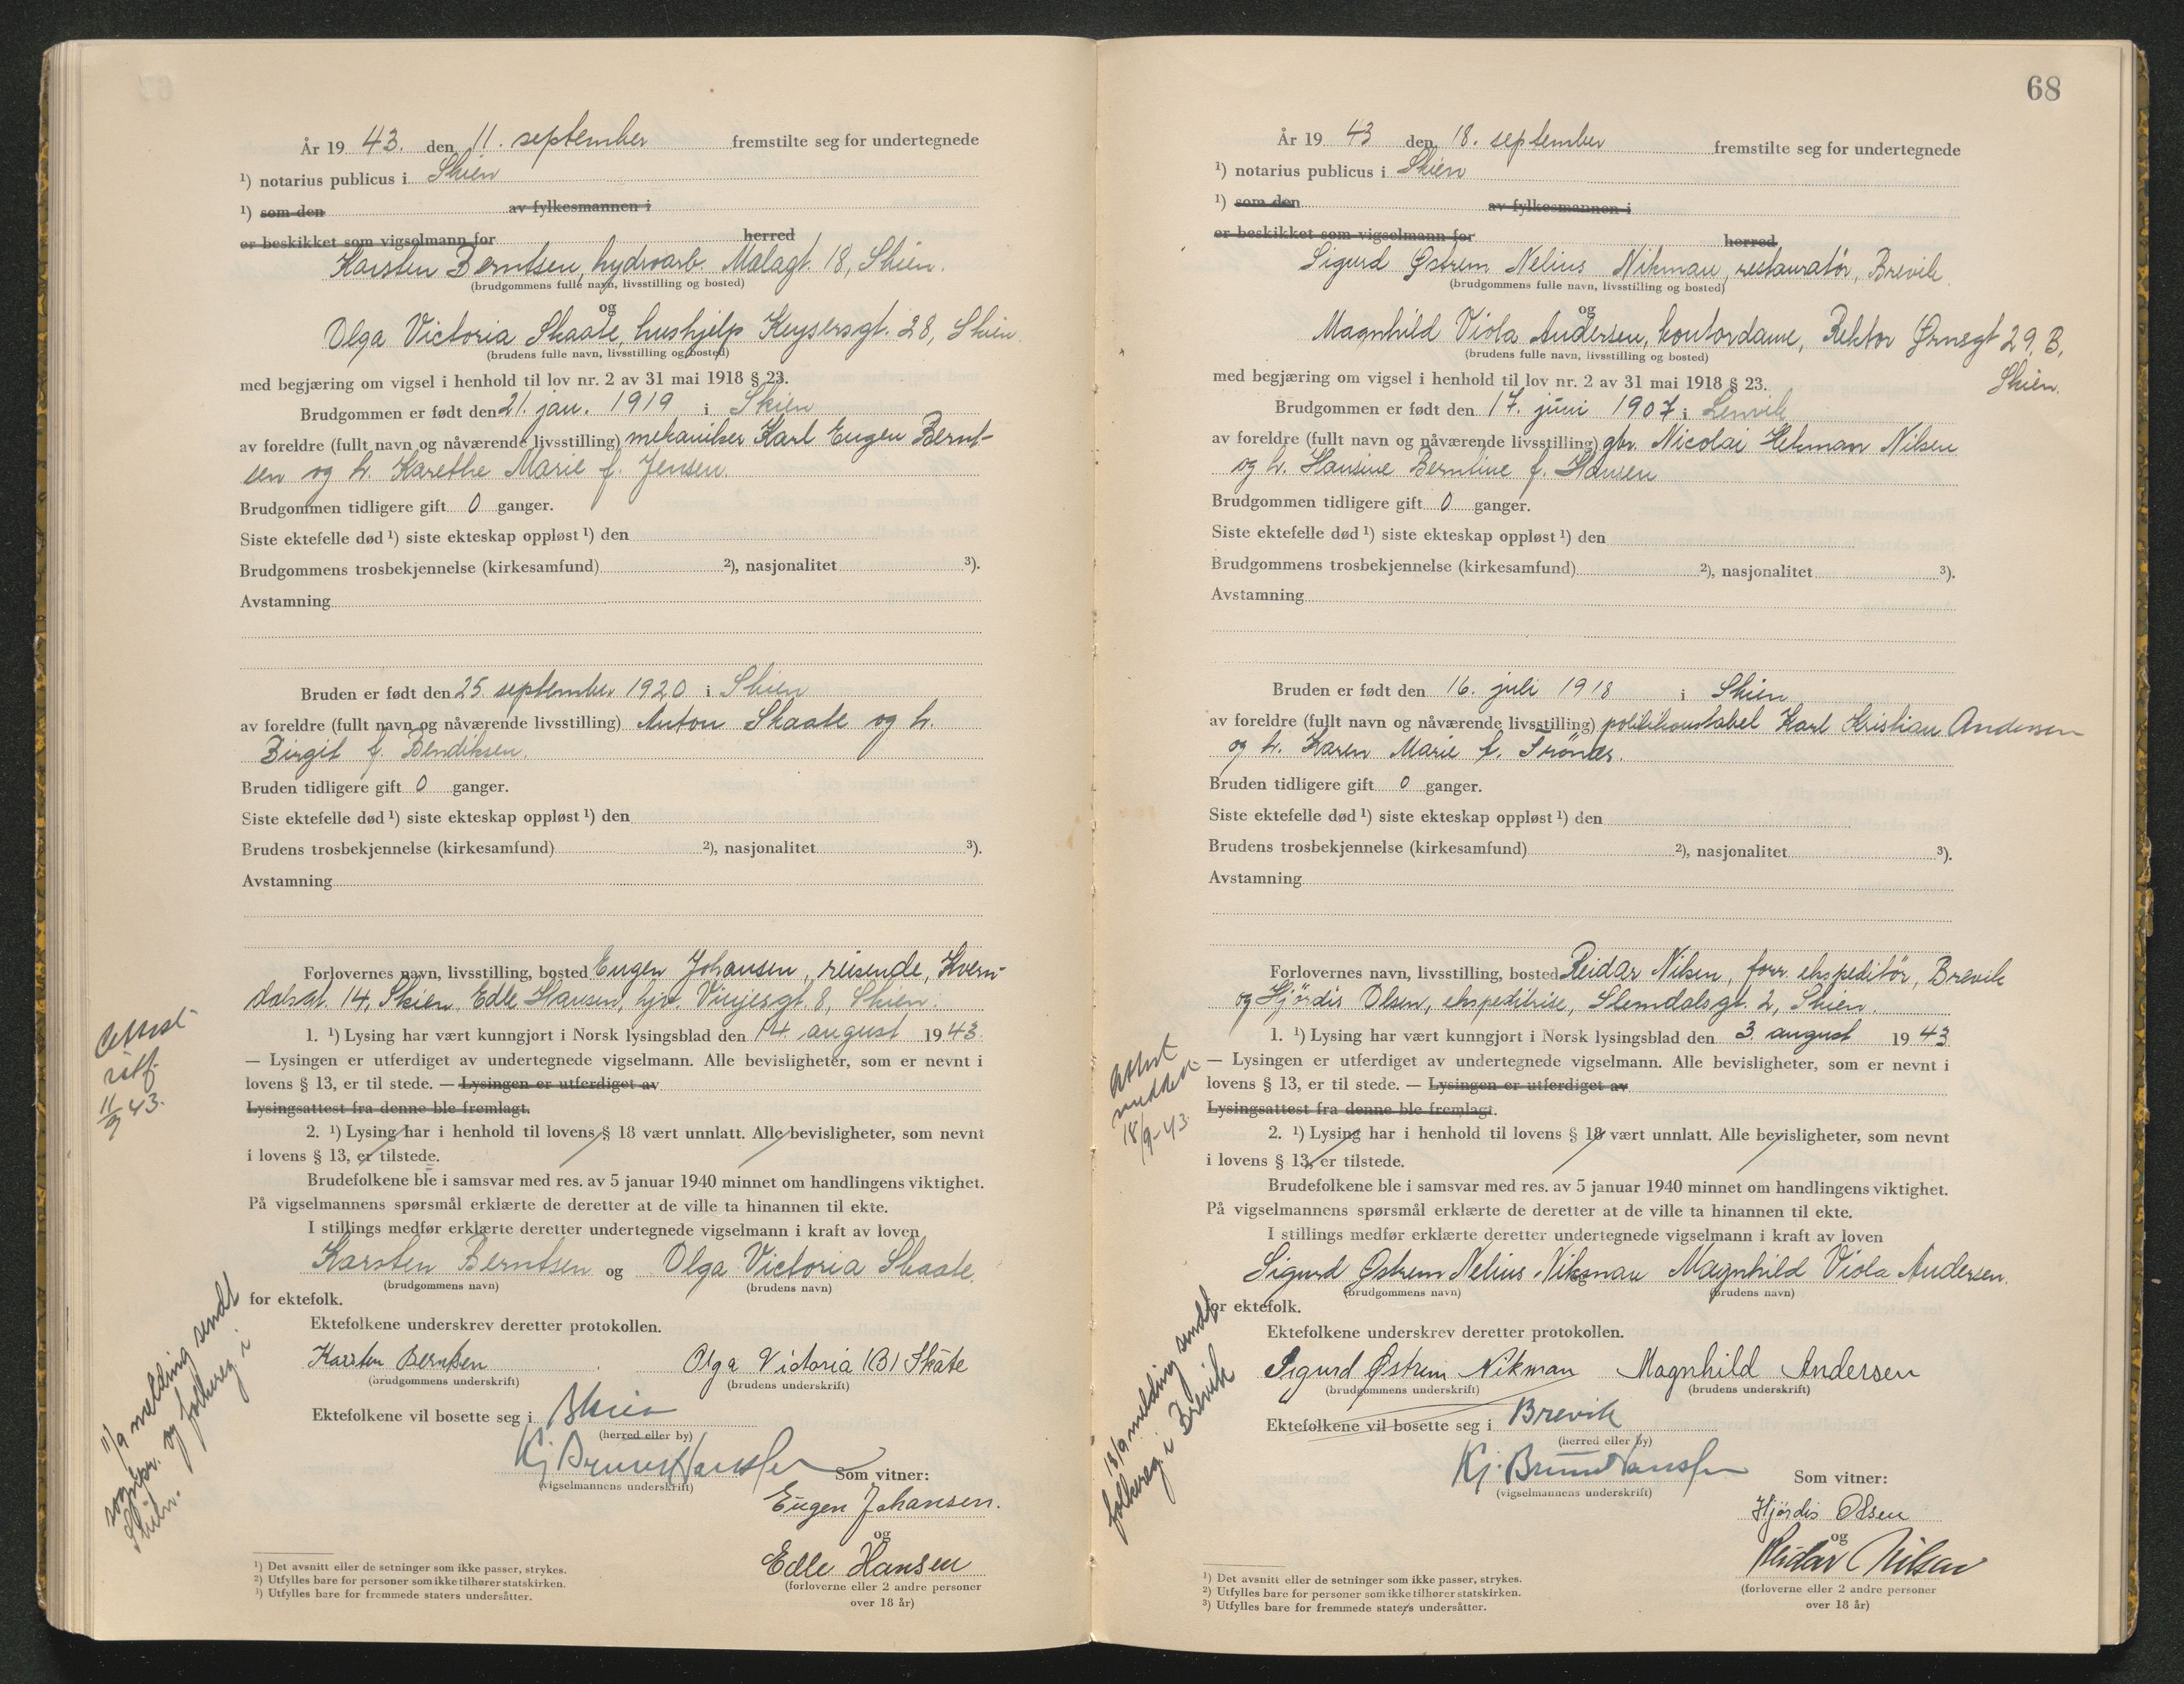 År 19 43. den 11. september fremstilte seg for undertegnede
¹) notarius publicus i Skien
¹) som den av fylkesmannen i
er beskikket som vigselmann for herred
Karsten Berntsen, hydroarb. Malagt. 18, Skien.
(brudgommens fulle navn, livsstilling og bosted)
og
Olga Victoria Skaate, hushjelp Keysersgt. 28, Skien.
(brudens fulle navn, livsstilling og bosted)
med begjæring om vigsel i henhold til lov nr. 2 av 31 mai 1918 § 23.
Brudgommen er født den 21. jan. 1919 i Skien
av foreldre (fullt navn og nåværende livsstilling) mekaniker Karl Eugen Bernt-
sen og h. Karethe Marie f. Jensen.
Brudgommen tidligere gift 0 ganger.
Siste ektefelle død ¹) siste ekteskap oppløst ¹) den
Brudgommens trosbekjennelse (kirkesamfund) ²), nasjonalitet ³).
Avstamning
Bruden er født den 25. september 1920 i Skien
av foreldre (fullt navn og nåværende livsstilling) Anton Skaate og h.
Birgit f. Bendiksen.
Bruden tidligere gift 0 ganger.
Siste ektefelle død ¹) siste ekteskap oppløst ¹) den
Brudens trosbekjennelse (kirkesamfund) ²), nasjonalitet ³).
Avstamning
Forlovernes navn, livsstilling, bosted Eugen Johansen, reisende, Kvern-
dalsgt. 14, Skien, Edle Hansen, hjv. Vinjesgt. 8, Skien.
1. ¹) Lysing har vært kunngjort i Norsk lysingsblad den 14. august 19 43.
— Lysingen er utferdiget av undertegnede vigselmann. Alle bevisligheter, som er nevnt i
lovens § 13, er til stede. — Lysingen er utferdiget av
Lysingsattest fra denne ble fremlagt.
2. ¹) Lysing har i henhold til lovens § 18 vært unnlatt. Alle bevisligheter, som nevnt
i lovens § 13, er tilstede.
Brudefolkene ble i samsvar med res. av 5 januar 1940 minnet om handlingens viktighet.
På vigselmannens spørsmål erklærte de deretter at de ville ta hinannen til ekte.
I stillings medfør erklærte deretter undertegnede vigselmann i kraft av loven
Karsten Berntsen og Olga Victoria Skaate.
(brudgommens navn) (brudens navn)
for ektefolk.
Ektefolkene underskrev deretter protokollen.
Karsten Berntsen Olga Victoria (B) Skåte
(brudgommens underskrift) (brudens underskrift)
Ektefolkene vil bosette seg i Skien
(herred eller by)
Kj Bruun Hanssen
(vigselmannens underskrift) Som vitner:
Eugen Johansen.
og
Edle Hansen
(forloverne eller 2 andre personer
over 18 år)
¹) Det avsnitt eller de setninger som ikke passer, strykes.
²) Utfylles bare for personer som ikke tilhører statskirken.
³) Utfylles bare for fremmede staters undersåtter.
Attest
utf.
11/9 43.
11/9 melding sendt
sognepr. og folkereg. i
Skien.
68
År 19 43 den 18. september fremstilte seg for undertegnede
¹) notarius publicus i Skien
¹) som den av fylkesmannen i
er beskikket som vigselmann for herred
Sigurd Østrem Nelius Nikman, restauratør, Brevik.
(brudgommens fulle navn, livsstilling og bosted)
og
Magnhild Viola Andersen, kontordame, Rektor Ørnsgt 29. B,
Skien.
(brudens fulle navn, livsstilling og bosted)
med begjæring om vigsel i henhold til lov nr. 2 av 31 mai 1918 § 23.
Brudgommen er født den 17. juni 1907 i Lenvik
av foreldre (fullt navn og nåværende livsstilling) gbr. Nicolai Hekman Nilsen
og h. Hansine Berntine f. Hansen
Brudgommen tidligere gift 0 ganger.
Siste ektefelle død ¹) siste ekteskap oppløst ¹) den
Brudgommens trosbekjennelse (kirkesamfund) ²), nasjonalitet ³).
Avstamning
Bruden er født den 16. juli 1918 i Skien
av foreldre (fullt navn og nåværende livsstilling) politikonstabel Karl Kristian Andersen
og h. Karen Marie f.
Bruden tidligere gift 0 ganger.
Siste ektefelle død ¹) siste ekteskap oppløst ¹) den
Brudens trosbekjennelse (kirkesamfund) ²), nasjonalitet ³).
Avstamning
Forlovernes navn, livsstilling, bosted Reidar Nilsen, forr. ekspeditør, Brevik
og Hjørdis Olsen, ekspeditrise, Slemdalsgt. 2, Skien.
1. ¹) Lysing har vært kunngjort i Norsk lysingsblad den 3. august 19 43
— Lysingen er utferdiget av undertegnede vigselmann. Alle bevisligheter, som er nevnt i
lovens § 13, er til stede. — Lysingen er utferdiget av
Lysingsattest fra denne ble fremlagt.
2. ¹) Lysing har i henhold til lovens § 18 vært unnlatt. Alle bevisligheter, som nevnt
i lovens § 13, er tilstede.
Brudefolkene ble i samsvar med res. av 5 januar 1940 minnet om handlingens viktighet.
På vigselmannens spørsmål erklærte de deretter at de ville ta hinannen til ekte.
I stillings medfør erklærte deretter undertegnede vigselmann i kraft av loven
Sigurd Østrem Nelius Nikman Magnhild Viola Andersen.
(brudgommens navn) (brudens navn)
for ektefolk.
Ektefolkene underskrev deretter protokollen.
Sigurd Østrem Nikman Magnhild Andersen
(brudgommens underskrift) (brudens underskrift)
Ektefolkene vil bosette seg i Brevik
(herred eller by)
Kj. Bruun Hanssen
(vigselmannens underskrift) Som vitner:
Hjördis Olsen
og
Reidar Nilsen
(forloverne eller 2 andre personer
over 18 år)
¹) Det avsnitt eller de setninger som ikke passer, strykes.
²) Utfylles bare for personer som ikke tilhører statskirken.
³) Utfylles bare for fremmede staters undersåtter.
Attest
meddelt
18/9-43.
18/9 melding sendt
folkereg. i Brevik